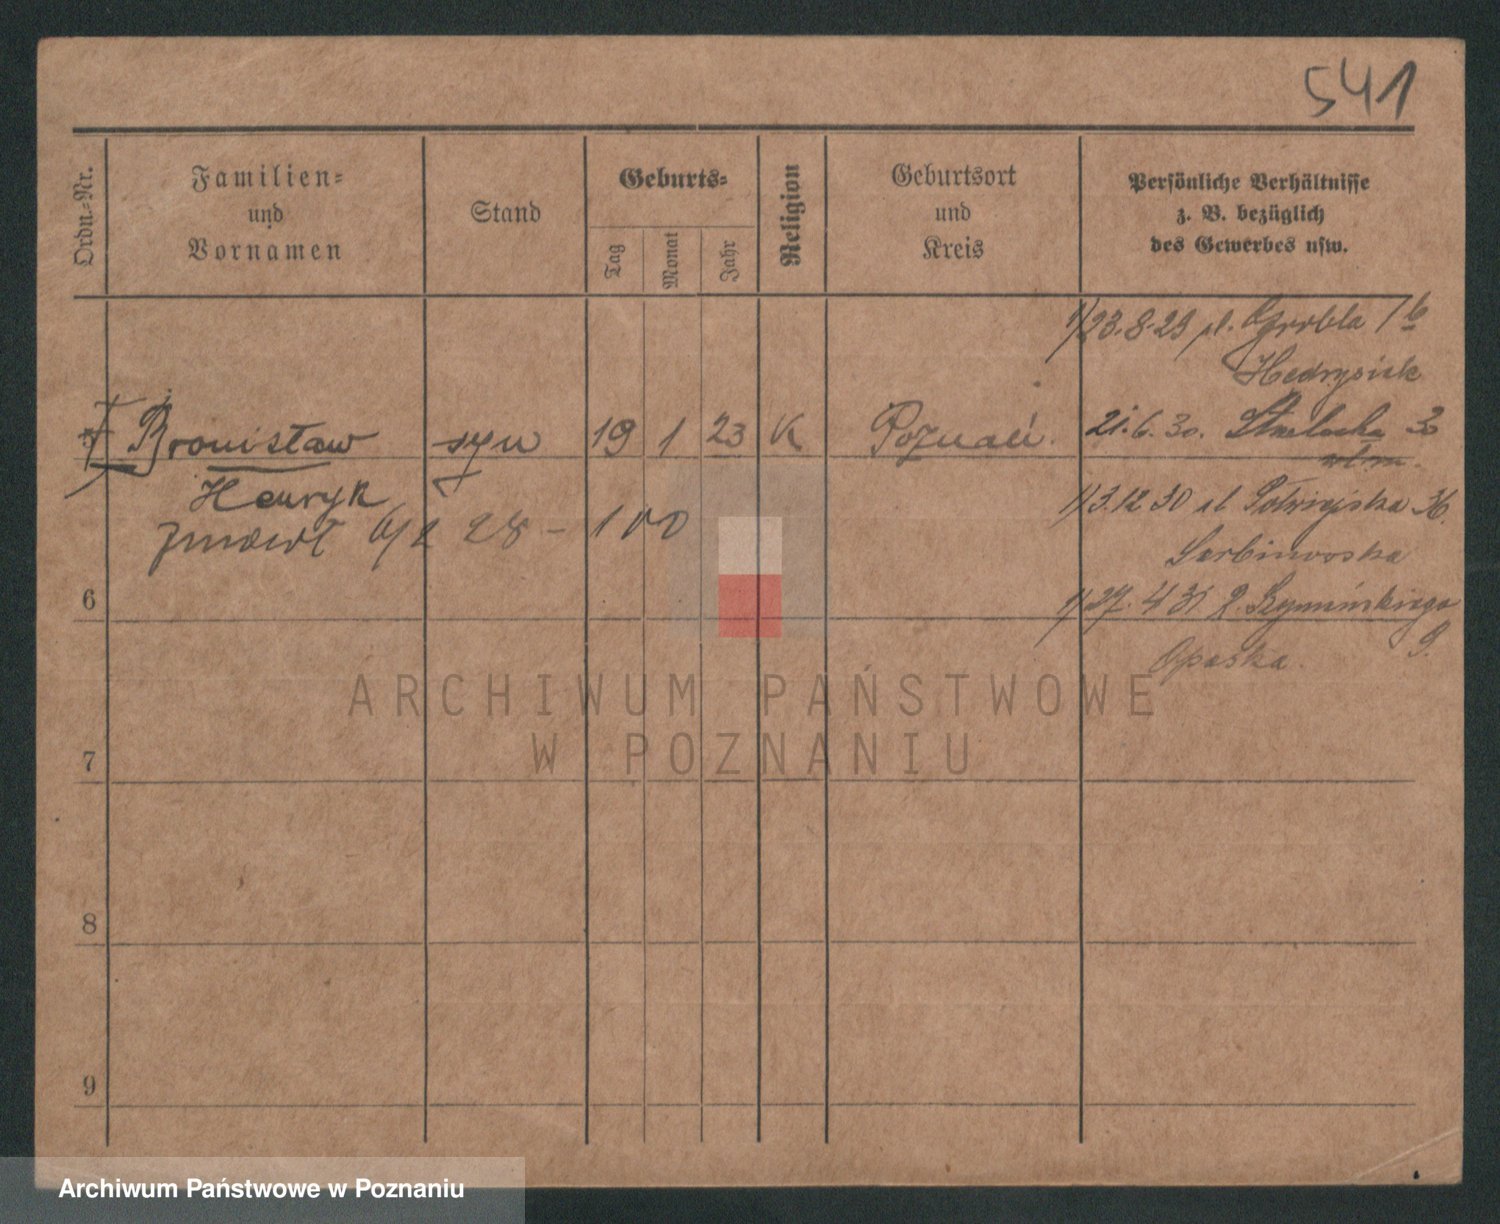 541
Ordn.=Nr.
Familien=
und
Vornamen
Stand
Geburts=
Tag
Monat
Jahr
Religion
Geburtsort
und
Kreis
Persönliche Verhältnisse
z. B. bezüglich
des Gewerbes usw.
1/23.8.29 pl. Grobla 1 b
Bronisław syn 19 1 23 K Poznań. 21.6.30. Strzelecka 30
Henryk
1/3.12 30 Półwiejska 36.
zmarł 6/2 28 - 100
Sarbinowska
6
1/27. 4 31 Szymańskiego
9.
Opaska.
ARCHIWUM PAŃSTWOWE
W POZNANIU
7
8
9
Archiwum Państwowe w Poznaniu